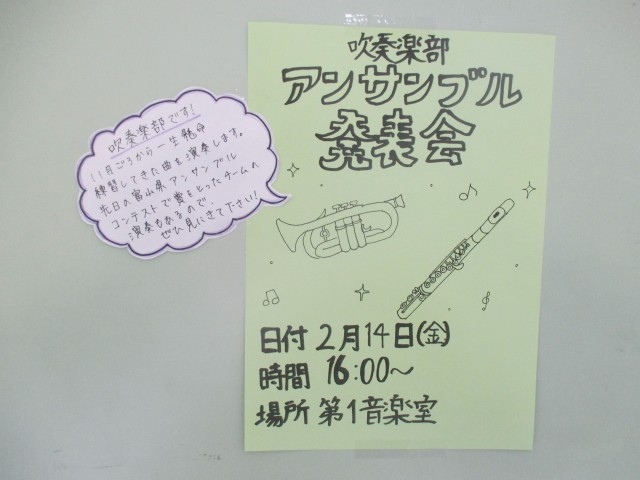 吹奏楽部
アンサンブル
発表会
日付 2月14日(金)
時間 16:00〜
場所 第1音楽室
吹奏楽部です!
11月ごろから一生懸命
練習してきた曲を演奏します。
先日の富山県アンサンブル
コンテストで賞をとったチームの
演奏もあるので、
ぜひ見にきて下さい!